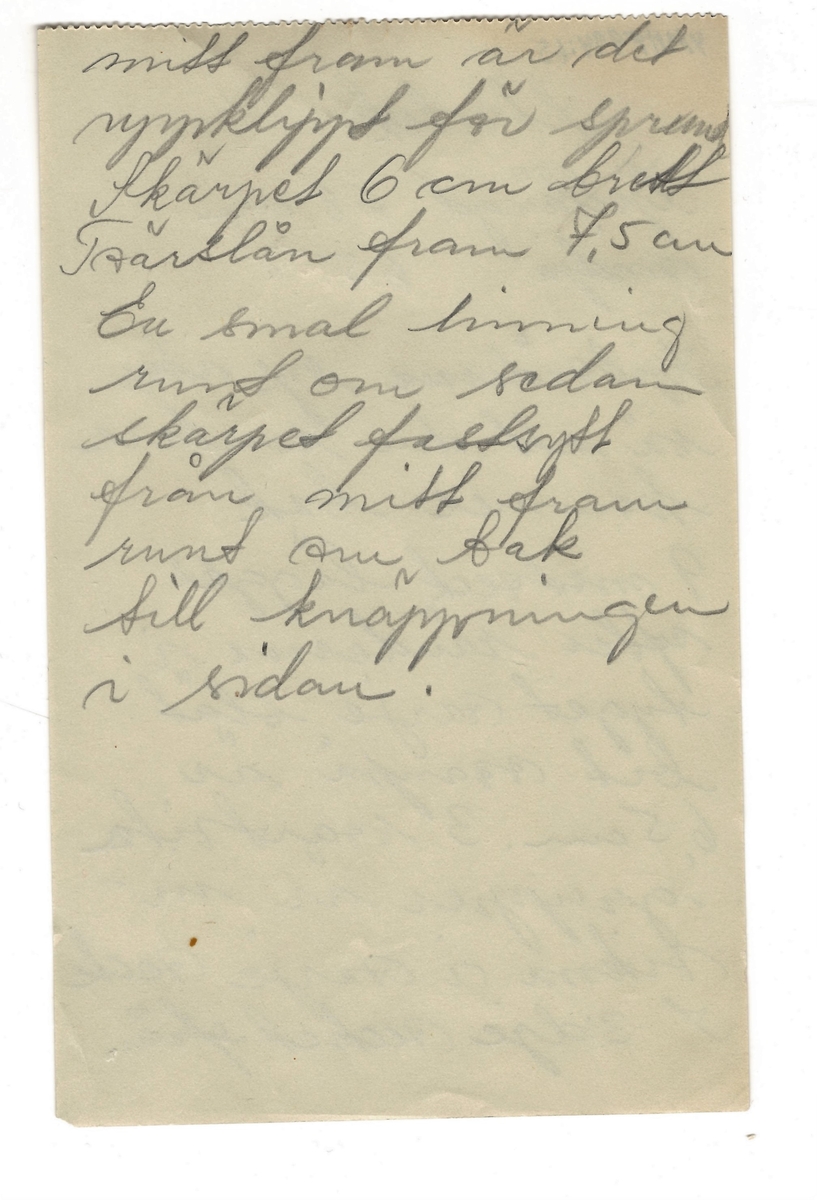 mitt fram är det
uppklippt för sprund
Skärpet 6 cm brett
Tvärslån fram 7,5 cm
En smal linning
runt om sedan
skärpet fastsytt
från mitt fram
runt om bak
till knäppningen
i sidan.